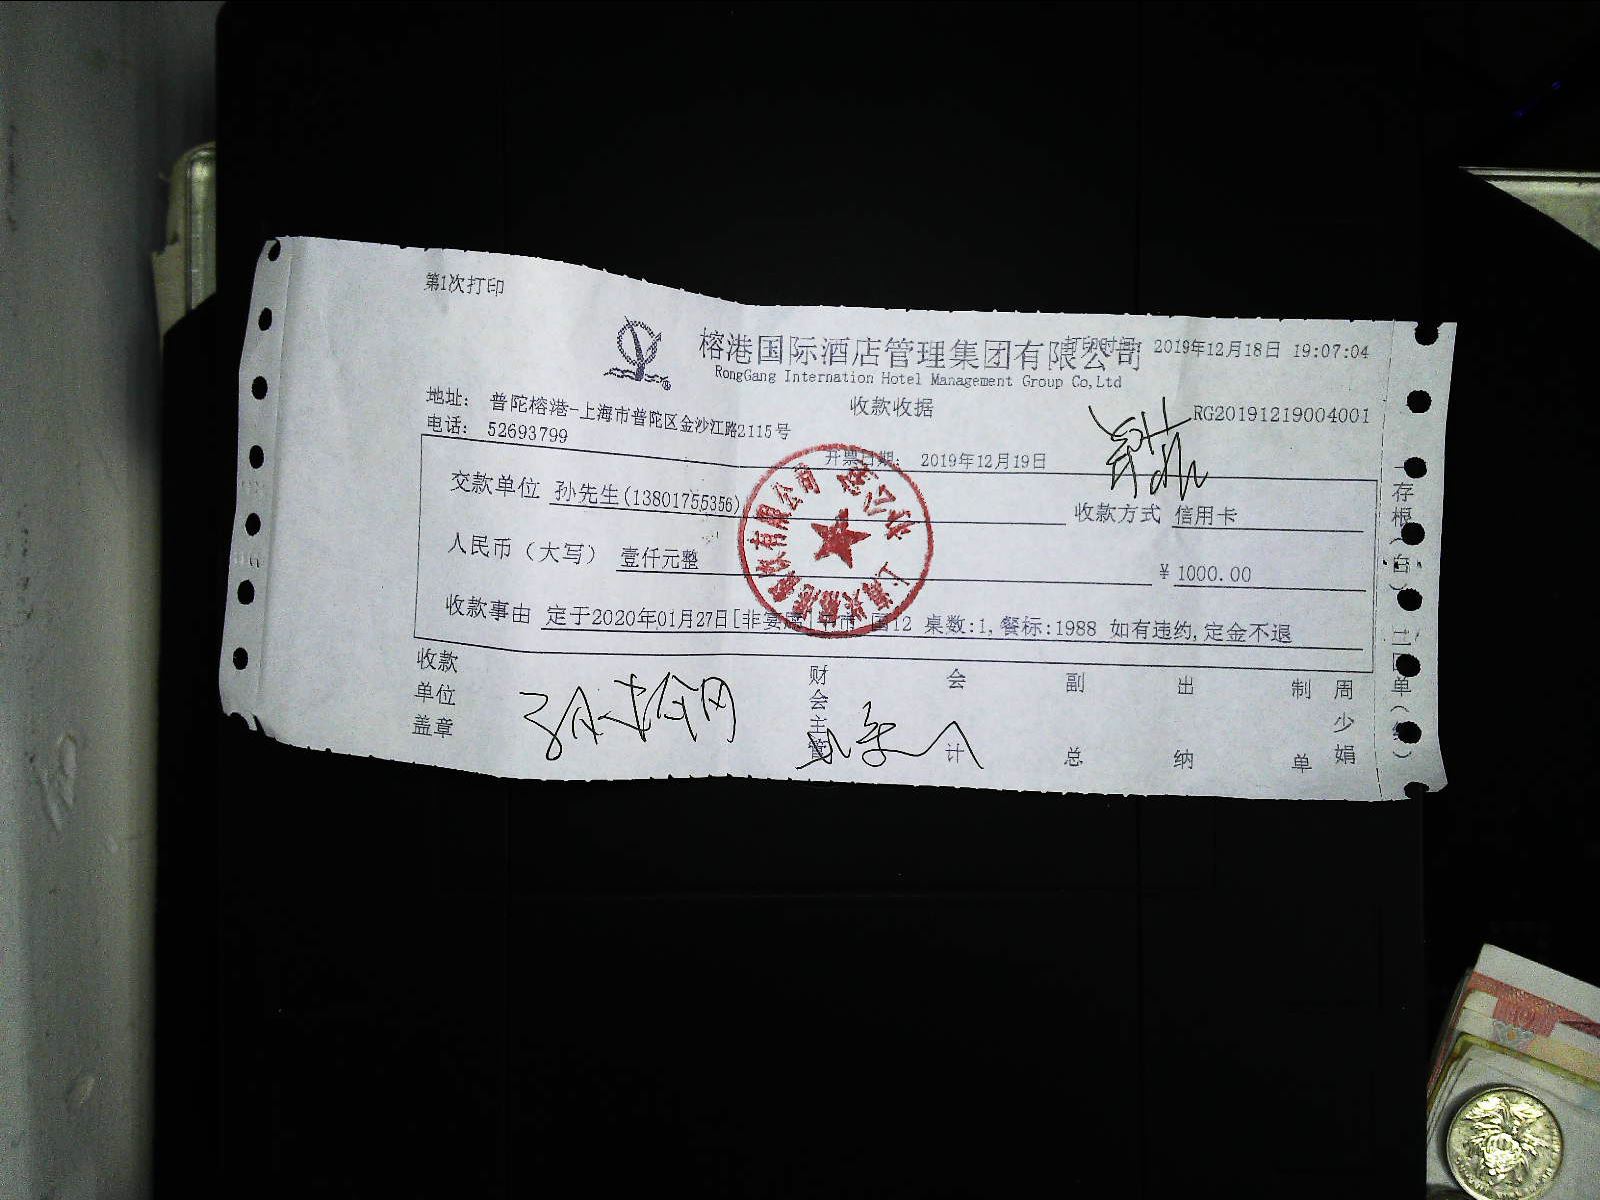 第1次打印
榕港国际酒店管理集团有限公司
打印时间: 2019年12月18日 19:07:04
RongGang Internation Hotel Management Group Co,Ltd
收款收据
RG20191219004001
地址: 普陀榕港-上海市普陀区金沙江路2115号
电话: 52693799
开票日期: 2019年12月19日
交款单位 孙先生(13801755356)
收款方式 信用卡
人民币（大写） 壹仟元整
¥ 1000.00
收款事由 定于2020年01月27日[非宴席] 市 12 桌数:1,餐标:1988 如有违约,定金不退
收款单位盖章
财会主管
会计
副总
出纳
制单
周少娟
存根